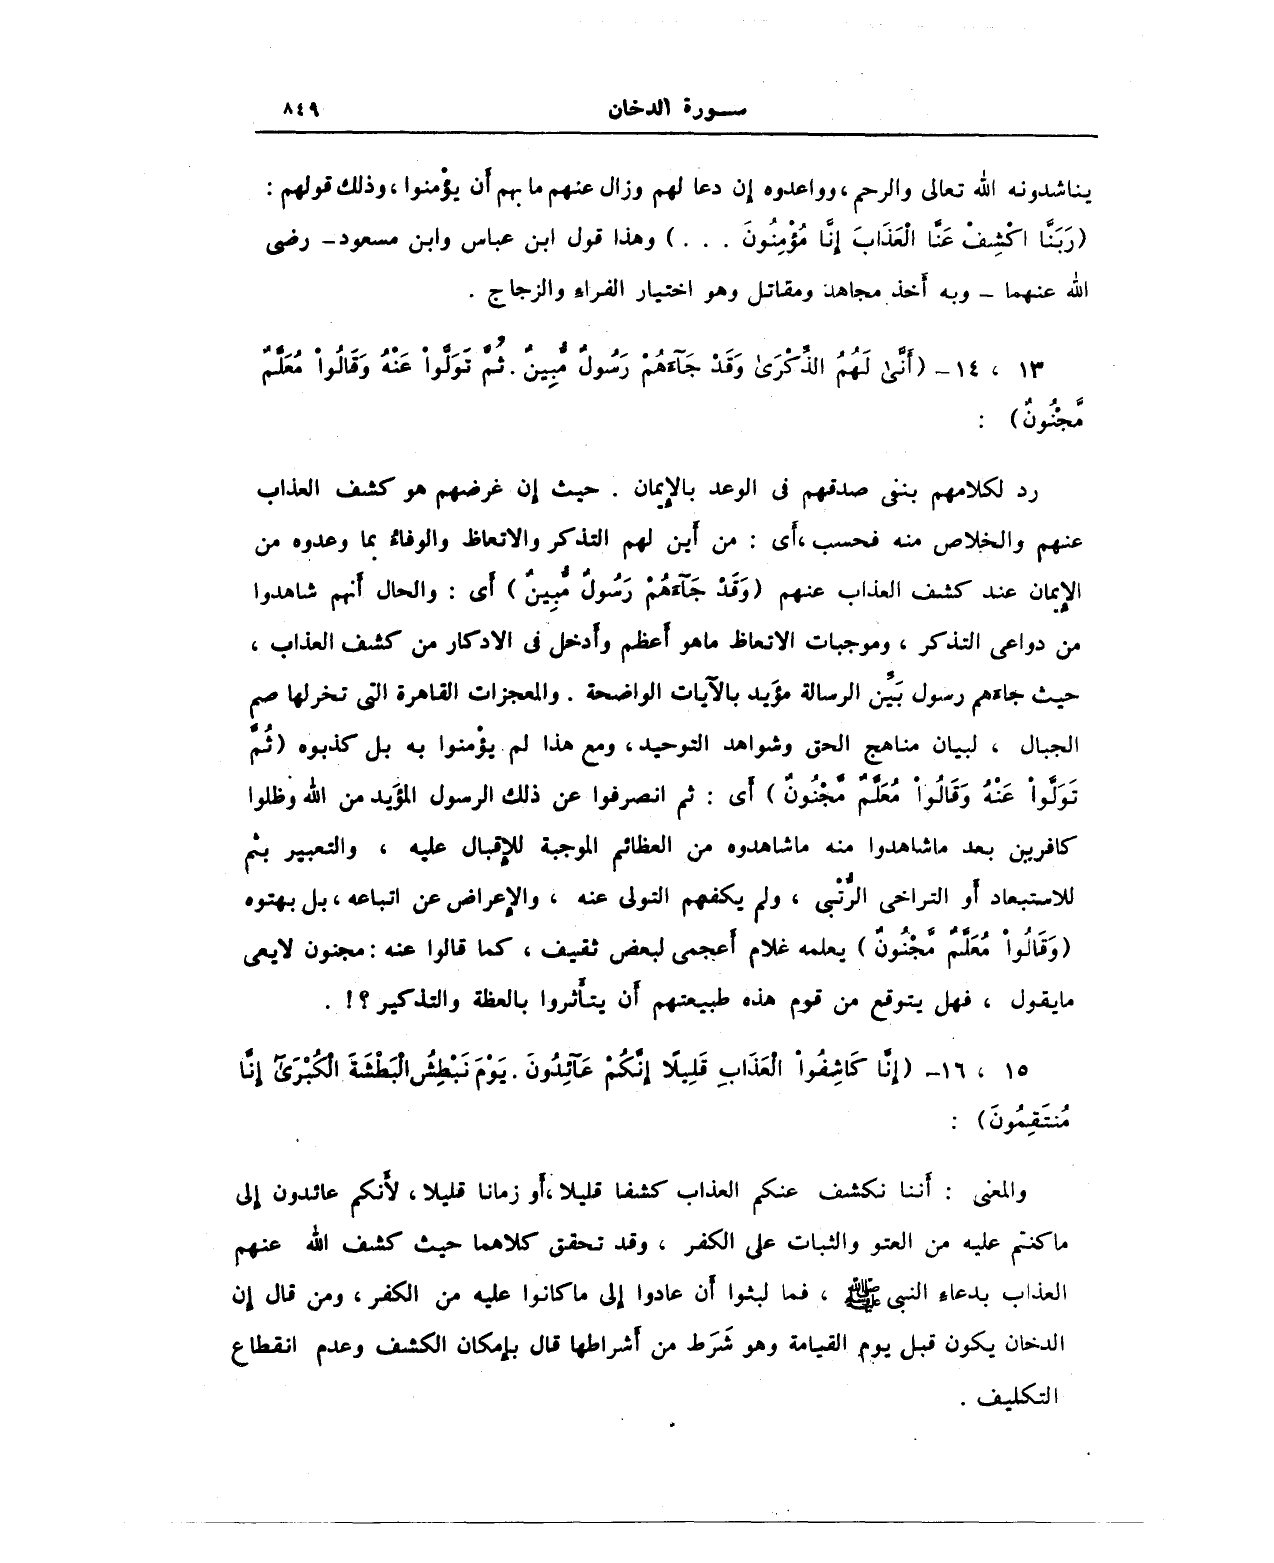 سورة الدخان ٨٤٩
يناشدونه الله تعالى والرحم ، وواعدوه إن دعا لهم وزال عنهم ما بهم أن يؤمنوا ، وذلك قولهم :
(رَبَّنَا اكْشِفْ عَنَّا الْعَذَابَ إِنَّا مُؤْمِنُونَ . . . ) وهذا قول ابن عباس وابن مسعود - رضى
الله عنهما - وبه أخذ مجاهد ومقاتل وهو اختيار الفراء والزجاج .
١٣ ، ١٤ - (أَنَّىٰ لَهُمُ الذِّكْرَىٰ وَقَدْ جَآءَهُمْ رَسُولٌ مُّبِينٌ . ثُمَّ تَوَلَّواْ عَنْهُ وَقَالُواْ مُعَلَّمٌ
مَّجْنُونٌ) :
رد لكلامهم بنفى صدقهم فى الوعد بالإيمان . حيث إن غرضهم هو كشف العذاب
عنهم والخلاص منه فحسب ، أى : من أين لهم التذكر والاتعاظ والوفاءُ بما وعدوه من
الإيمان عند كشف العذاب عنهم (وَقَدْ جَآءَهُمْ رَسُولٌ مُّبِينٌ ) أى : والحال أنهم شاهدوا
من دواعى التذكر ، وموجبات الاتعاظ ماهو أعظم وأدخل فى الادكار من كشف العذاب ،
حيث جاءهم رسول بَيِّن الرسالة مؤيد بالآيات الواضحة . والمعجزات القاهرة التى تخرلها صم
الجبال ، لبيان مناهج الحق وشواهد التوحيد ، ومع هذا لم يؤمنوا به بل كذبوه (ثُمَّ
تَوَلَّواْ عَنْهُ وَقَالُواْ مُعَلَّمٌ مَّجْنُونٌ ) أى : ثم انصرفوا عن ذلك الرسول المؤيد من الله وظلوا
كافرين بعد ماشاهدوا منه ماشاهدوه من العظائم الموجبة للإقبال عليه ، والتعبير بثم
للاستبعاد أو التراخى الرُّتْبى ، ولم يكفهم التولى عنه ، والإعراض عن اتباعه ، بل بهتوه
(وَقَالُواْ مُعَلَّمٌ مَّجْنُونٌ ) يعلمه غلام أعجمى لبعض ثقيف ، كما قالوا عنه : مجنون لايعى
مايقول ، فهل يتوقع من قوم هذه طبيعتهم أن يتأثروا بالعظة والتذكير ؟! .
١٥ ، ١٦ - (إِنَّا كَاشِفُواْ الْعَذَابِ قَلِيلًا إِنَّكُمْ عَآئِدُونَ . يَوْمَ نَبْطِشُ الْبَطْشَةَ الْكُبْرَىٰٓ إِنَّا
مُنتَقِمُونَ) :
والمعنى : أننا نكشف عنكم العذاب كشفا قليلا ، أو زمانا قليلا ، لأنكم عائدون إلى
ماكنتم عليه من العتو والثبات على الكفر ، وقد تحقق كلاهما حيث كشف الله عنهم
العذاب بدعاء النبى ﷺ ، فما لبثوا أن عادوا إلى ماكانوا عليه من الكفر ، ومن قال إن
الدخان يكون قبل يوم القيامة وهو شَرَط من أشراطها قال بإمكان الكشف وعدم انقطاع
التكليف .